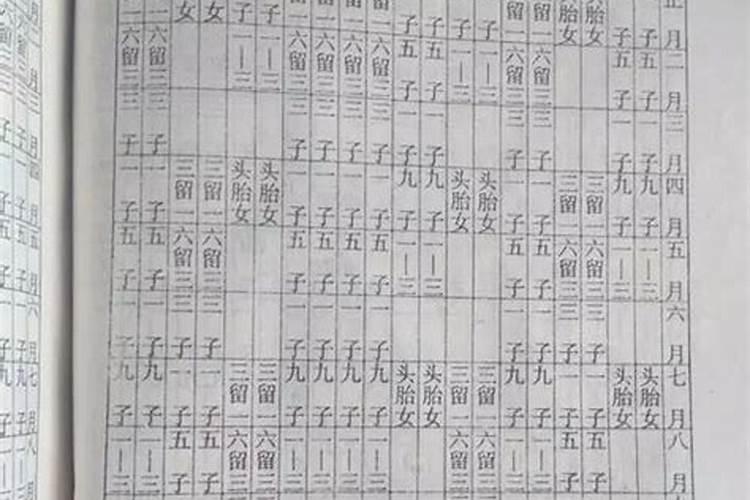 正月二月三月四月五月六月七月八月
子五子一子九子一—三头胎女
子五子一子九子一—三头胎女
胎女三留一六留三三子一子五子
胎女三留一六留三三子一子五子
留一六留三三子一子五子一子九子一—三
留一六留三三子一子五子一子九子一—三
子一—三头胎女三留一六留三
子一—三头胎女三留一六留三
子五子一子九子一—三头胎女
子五子一子九子一—三头胎女
留一六留三三子一子五子一子九子一—三
一六留三三子一子五子一子九子一—三
一六留三三子一子五子一子九子一—三
一六留三三子一子五子一子九子一—三
子一—三头胎女三留一六留三
子一—三头胎女三留一六留三
女三留一六留三三子一子五子
女三留一六留三三子一子五子
一六留三三子一子五子一子九子一—三
一六留三三子一子五子一子九子一—三